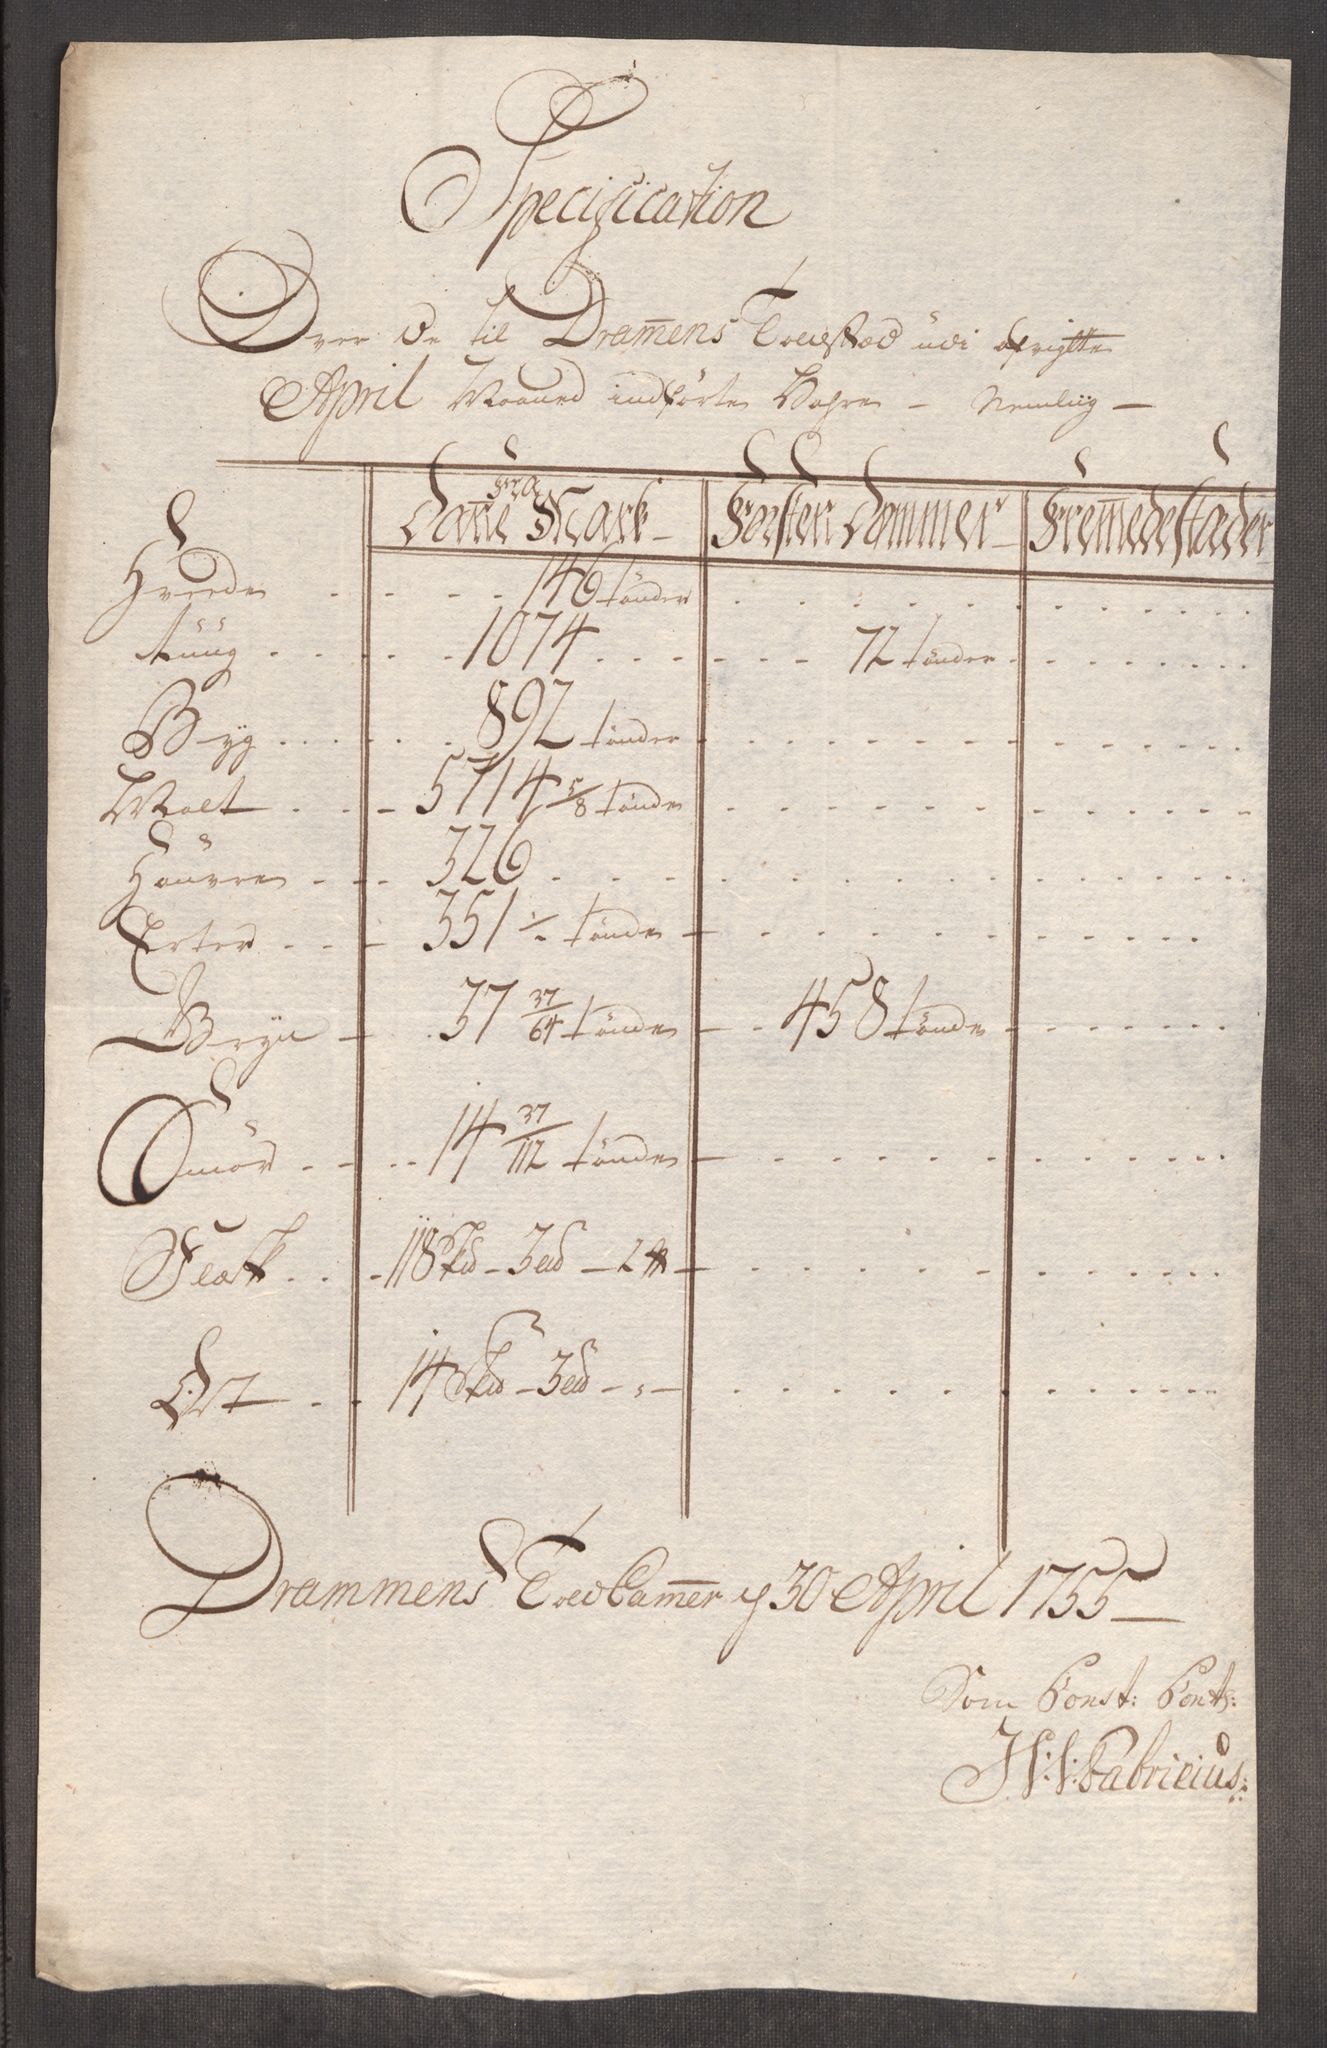 Specification
Over de til Drammens Toldstæd udi afvigte
April Maaned indførte Vahre - Nemlig -
Fra
Danne Mark - Førsten Dommer - Fremmede Stæder
Hvede . . . . 146 tønder
Rüüg . . . . 1074 . . . 72 tønder
Byg . . . . 892 tønder
Malt . . . - 5714 5/8 tønde
Haüvre . . . 326
Erter . . . - 351 tønde
Gryn - . 37 37/64 tønde - . 458 tønde
Smør . . . . 14 37/112 tønde -
Flæsk . . . 118 Skd - 3 Lld - 2 ℔ -
Ost - . . 14 Skd - 3 Lld - „ -
Drammens Told Cammer d 30 April 1755 -
Som Const: Cont:
H: V: Fabricius: